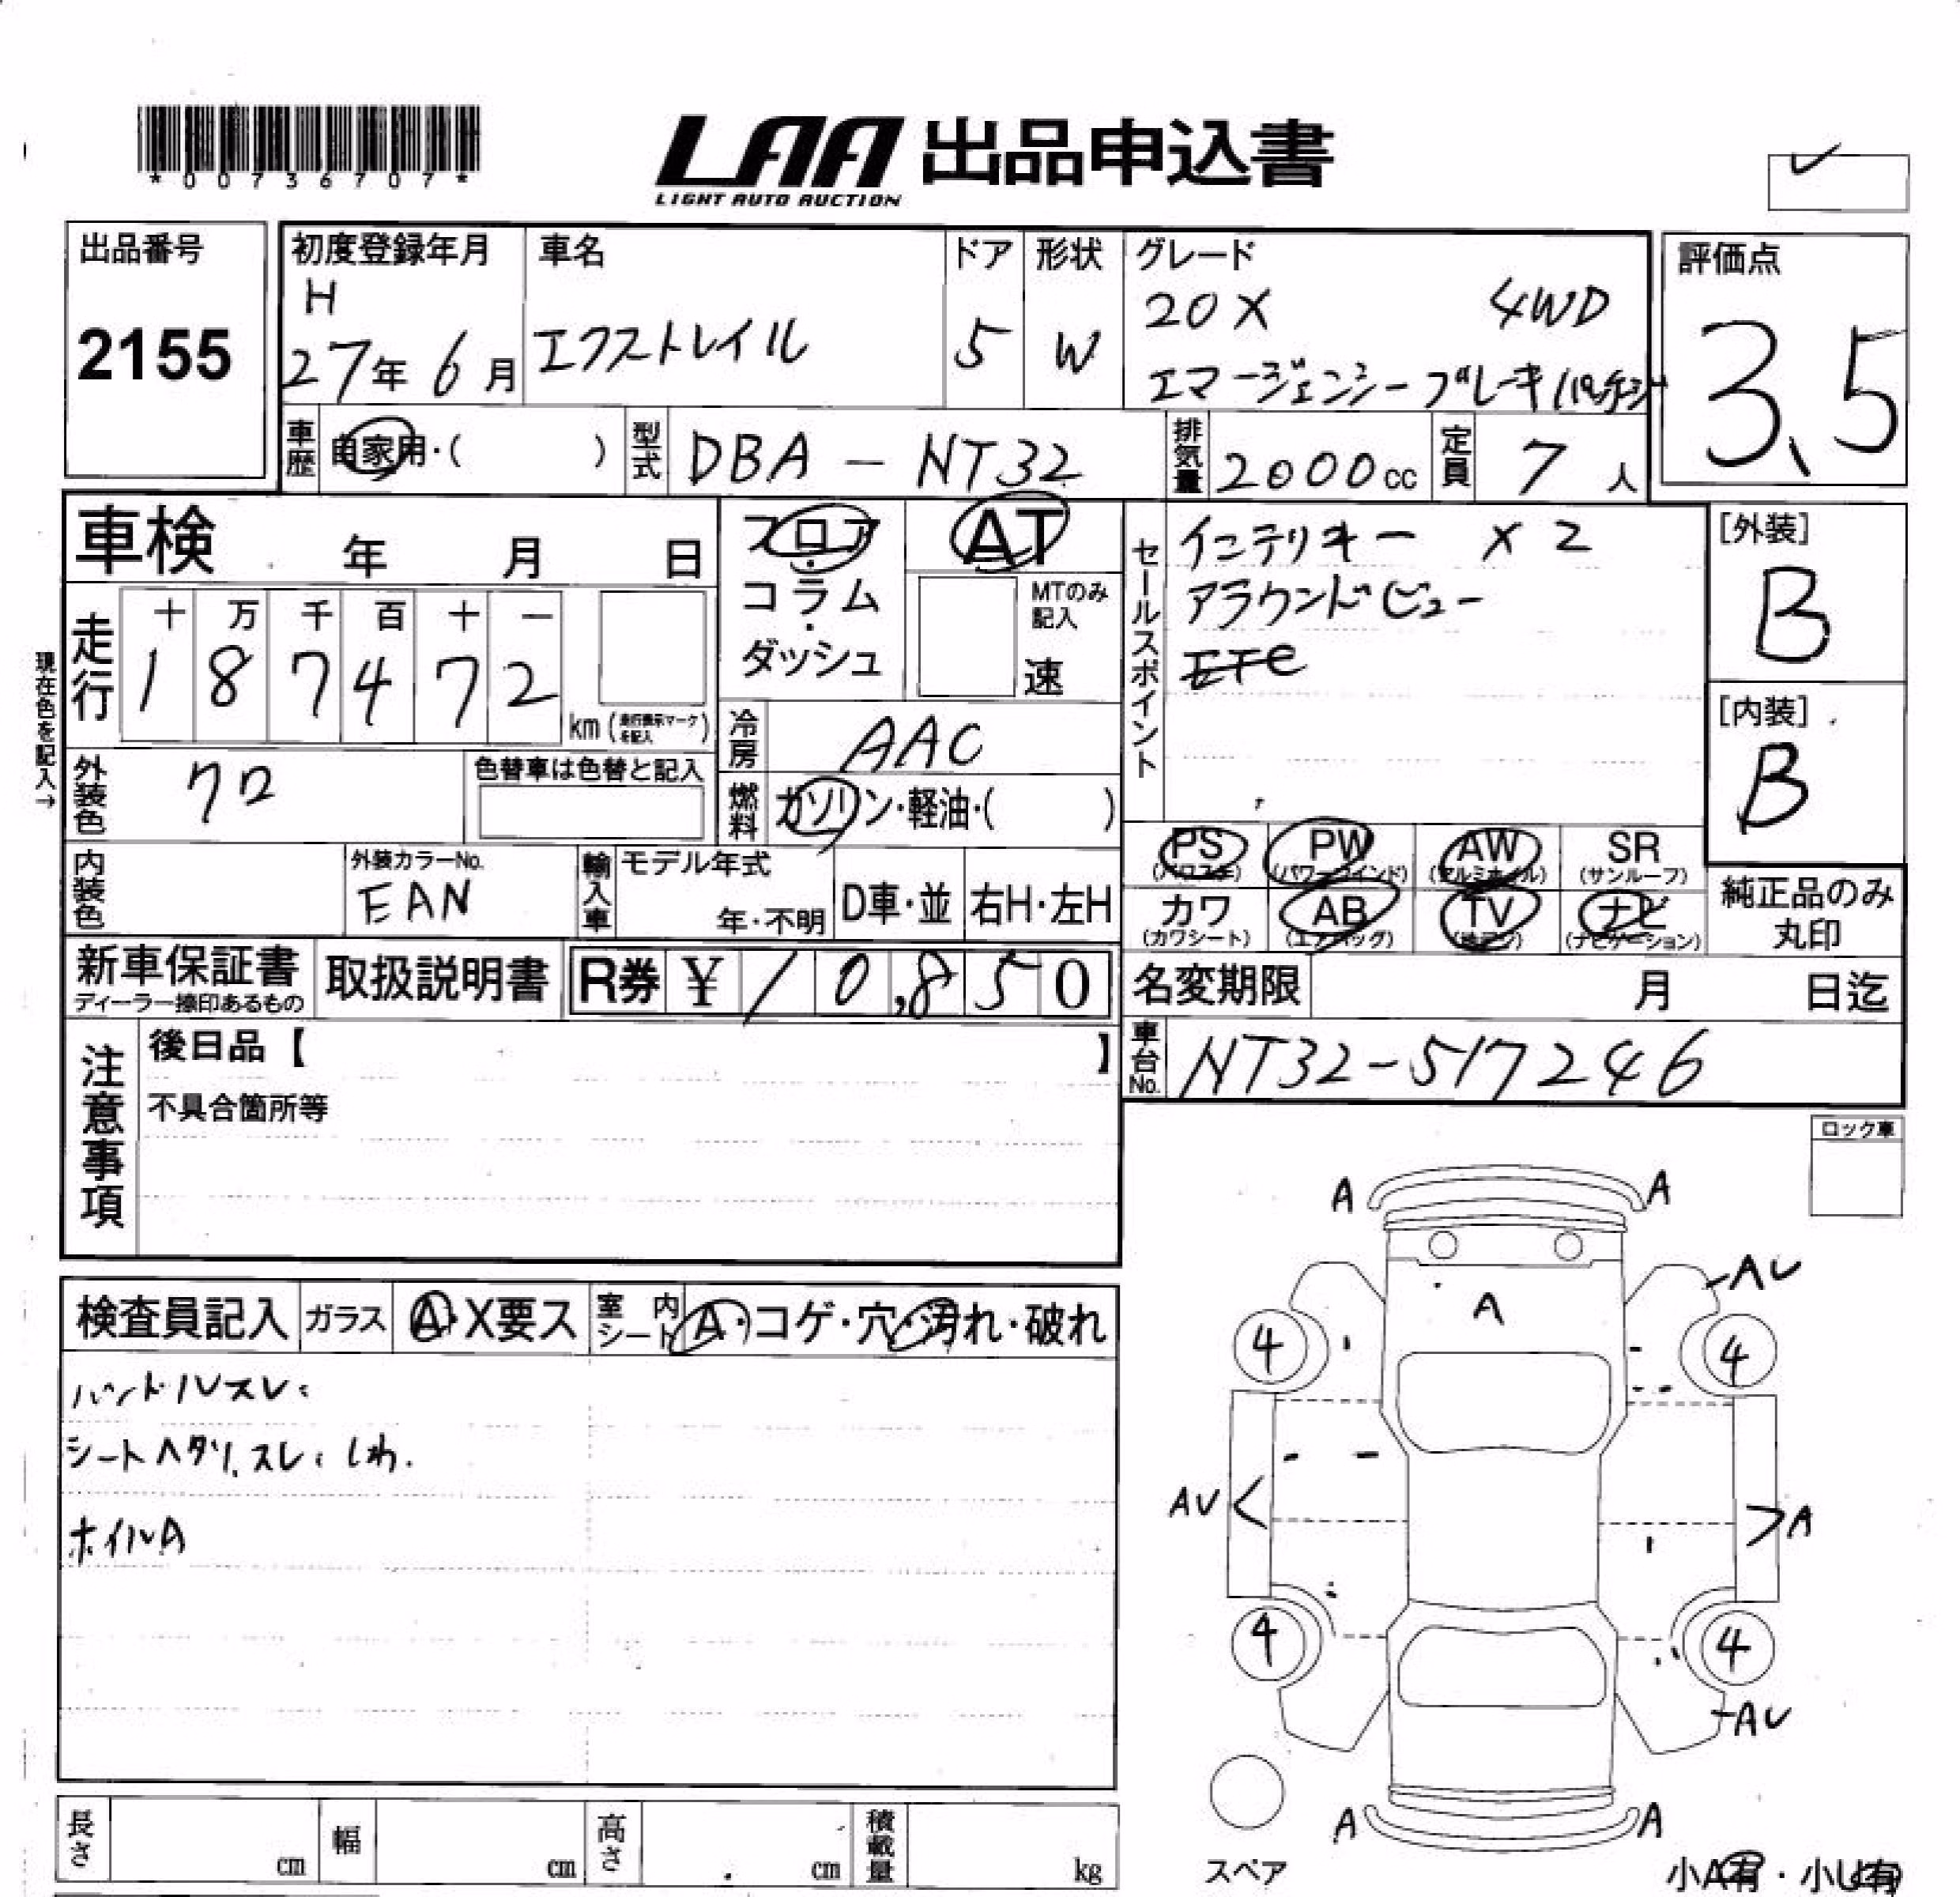 *00736707*
LAA 出品申込書
LIGHT AUTO AUCTION
出品番号
2155
初度登録年月
H
27年 6月
車名
エクストレイル
ドア
5
形状
W
グレード
20X 4WD
エマージェンシーブレーキ
評価点
3.5
車歴
自家用・( )
型式
DBA - NT32
排気量
2000cc
定員
7人
車検 年 月 日
現在色を記入→
走行
十 万 千 百 十 一
1 8 7 4 7 2
km (走行表示マークを記入)
フロア
・
コラム
・
ダッシュ
AT
MTのみ
記入
速
冷房
AAC
燃料
ガソリン・軽油・( )
セールスポイント
インテリキー ×2
アラウンドビュー
[外装]
B
[内装]
B
外装色
クロ
色替車は色替と記入
内装色
外装カラーNo.
EAN
輸入車
モデル年式
年・不明
D車・並
右H・左H
PS
(パワステ)
PW
(パワーウインド)
AW
(アルミホイル)
SR
(サンルーフ)
カワ
(カワシート)
AB
(エアバッグ)
TV
ナビ
(ナビゲーション)
純正品のみ
丸印
新車保証書
ディーラー捺印あるもの
取扱説明書
R券 ¥10,850
名変期限 月 日迄
車台No.
NT32-517246
注意事項
後日品【 】
不具合箇所等
ロック車
検査員記入
ガラス
A・X要ス
室内シート
A・コゲ・穴・汚れ・破れ
ハンドルスレ
シートヘタリ、スレ、しわ.
ホイルA
A A
AU
A
4 4
AU A
4 4
AU
A A
スペア
小A有・小U有
長さ cm
幅 cm
高さ cm
積載量 kg